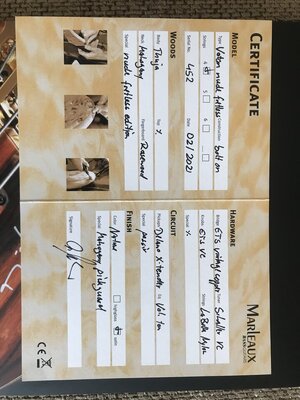 CERTIFICATE
MODEL
Type Votan nude fretless Construction bolt on
Strings 4 5 6
Serial 452 Date 02/2021
WOODS
Body Thuja Top %
Neck Mahogany Fingerboard Rosewood
Special nude fretless edition
MARLEAUX
HARDWARE
Bridge ETS vintage copper Tuner Schaller vc
Knobs ETS vc Strings LaBella Nylon
Special %
CIRCUIT
Pickups Delano Xtender EQ Vol, Ton
Special passiv
FINISH
Color Natur highgloss satin
Special Mahogany pickguard
Signature
CE